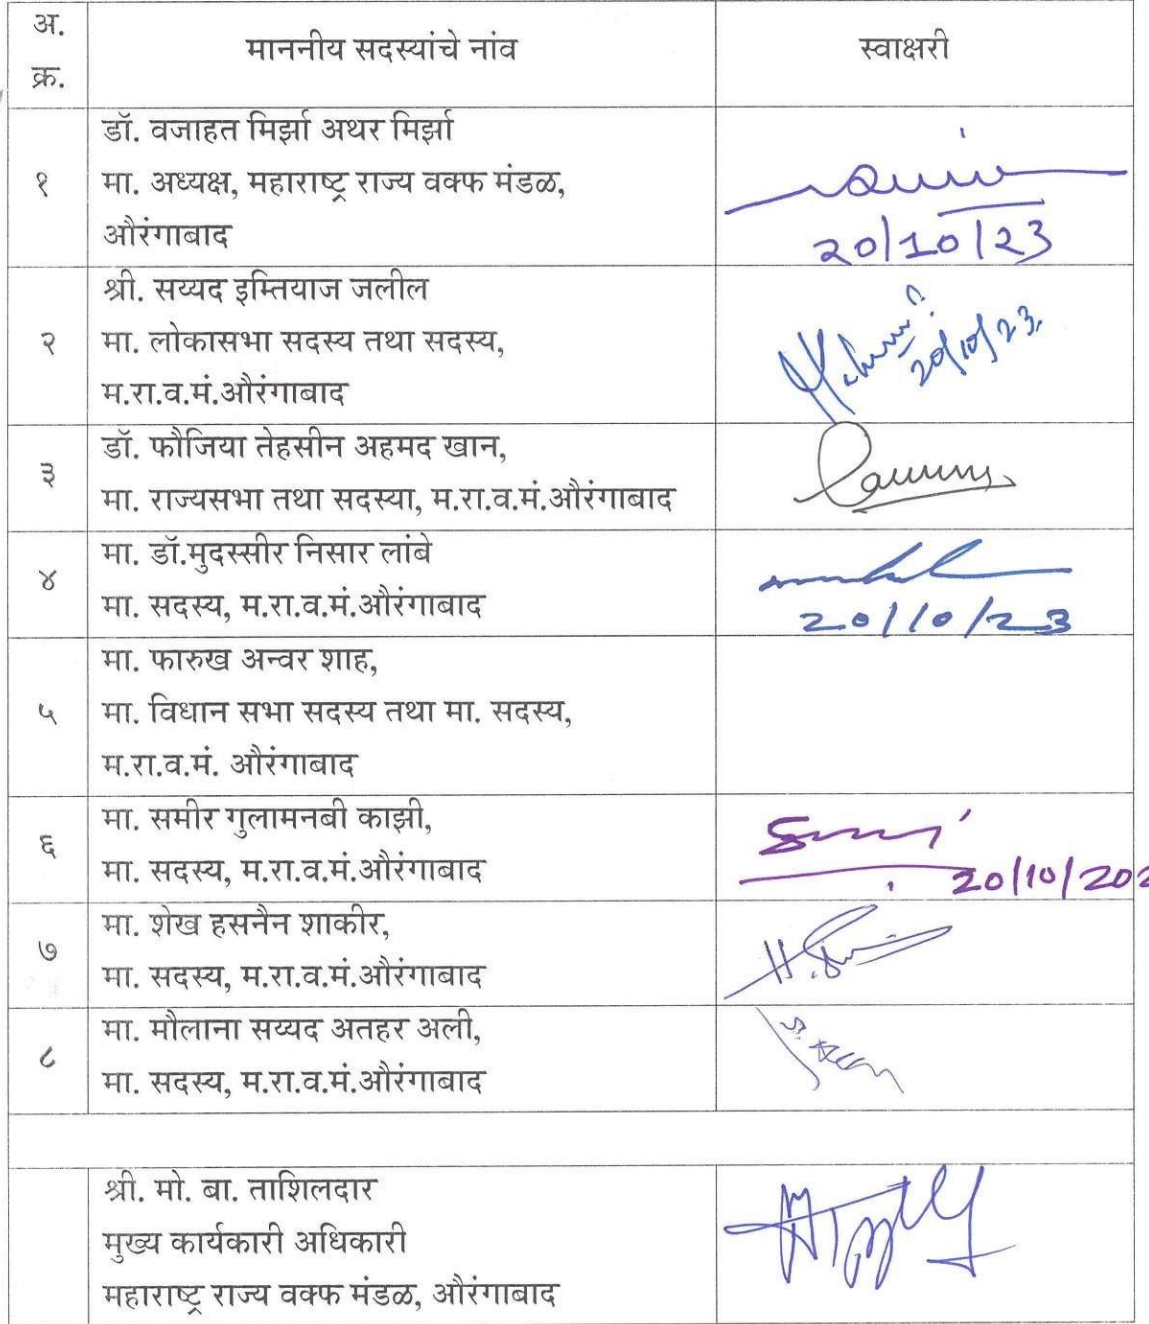 अ. क्र. माननीय सदस्यांचे नांव स्वाक्षरी
डॉ. वजाहत मिर्झा अथर मिर्झा
१ मा. अध्यक्ष, महाराष्ट्र राज्य वक्फ मंडळ,
औरंगाबाद
20/10/23
श्री. सय्यद इम्तियाज जलील
२ मा. लोकासभा सदस्य तथा सदस्य,
म.रा.व.मं.औरंगाबाद
20/10/23.
३ डॉ. फौजिया तेहसीन अहमद खान,
मा. राज्यसभा तथा सदस्या, म.रा.व.मं.औरंगाबाद
४ मा. डॉ.मुदस्सीर निसार लांबे
मा. सदस्य, म.रा.व.मं.औरंगाबाद
20/10/23
मा. फारुख अन्वर शाह,
५ मा. विधान सभा सदस्य तथा मा. सदस्य,
म.रा.व.मं. औरंगाबाद
६ मा. समीर गुलामनबी काझी,
मा. सदस्य, म.रा.व.मं.औरंगाबाद
20/10/202
७ मा. शेख हसनैन शाकीर,
मा. सदस्य, म.रा.व.मं.औरंगाबाद
८ मा. मौलाना सय्यद अतहर अली,
मा. सदस्य, म.रा.व.मं.औरंगाबाद
श्री. मो. बा. ताशिलदार
मुख्य कार्यकारी अधिकारी
महाराष्ट्र राज्य वक्फ मंडळ, औरंगाबाद